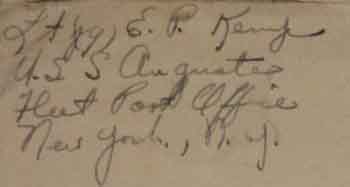 Lt jg, E. P. Kemp
U.S S Augusta
Fleet Post Office
New York., N.Y.